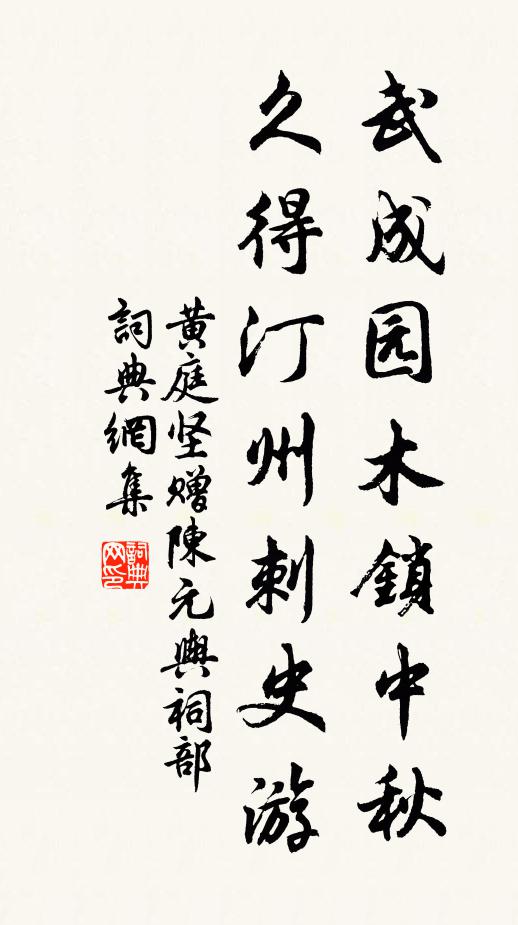 武成园木鎖中秋
久得汀州刺史游
黄庭坚赠陳元輿祠部
詞典網集
詞典
网印